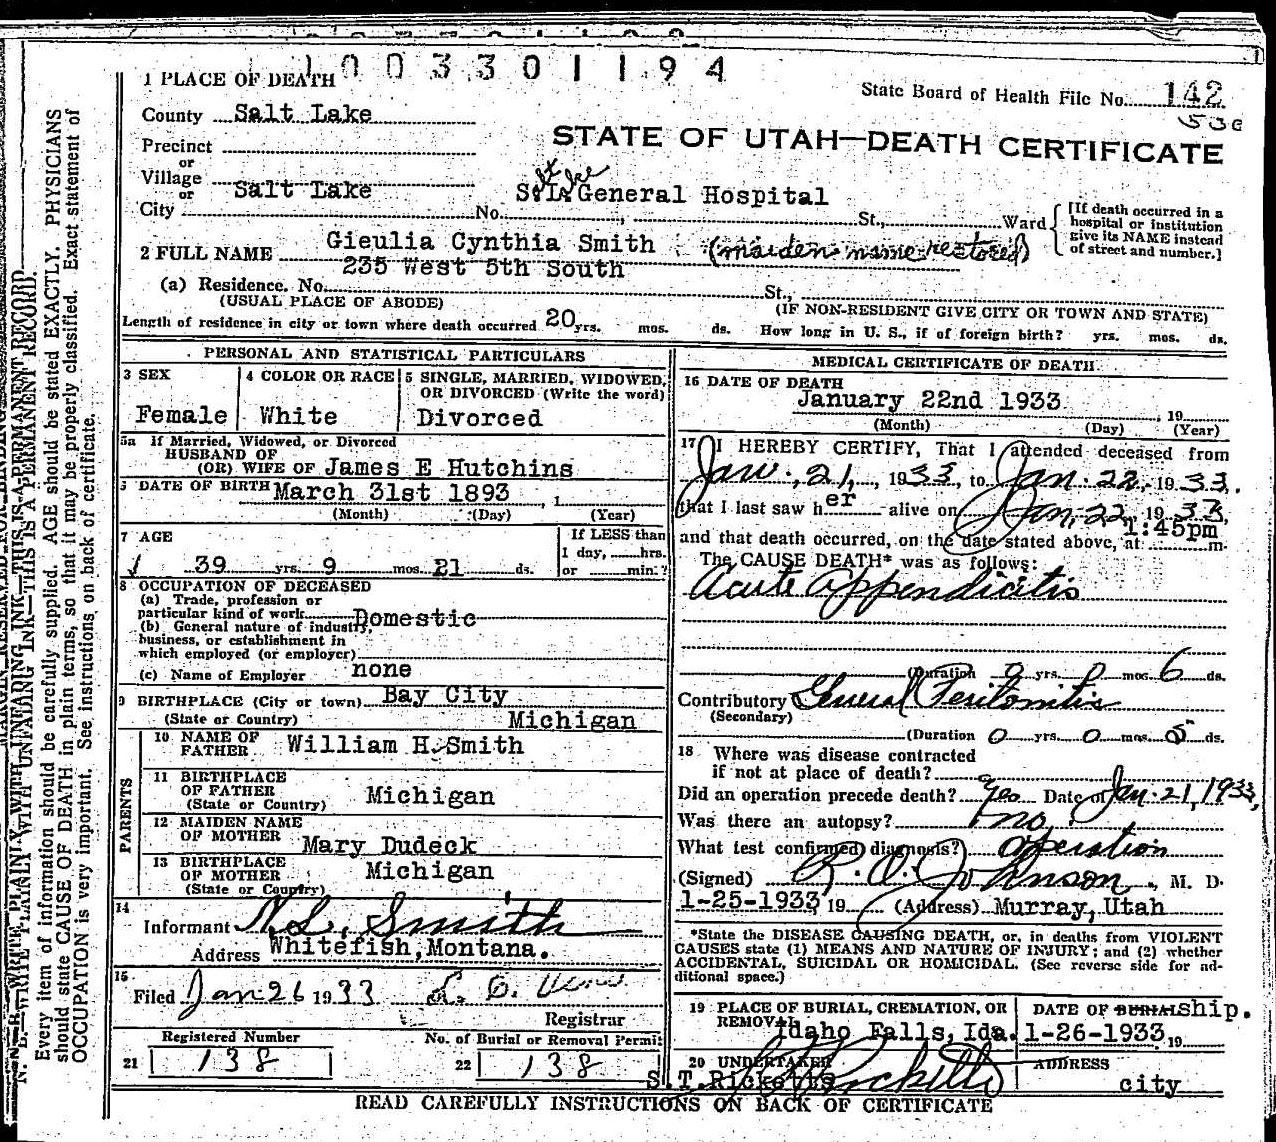 1003301194
State Board of Health File No. 142
STATE OF UTAH—DEATH CERTIFICATE
1 PLACE OF DEATH
County Salt Lake
Precinct
or
Village
or
City Salt Lake
S. L. General Hospital
No. St., Ward
[If death occurred in a
hospital or institution
give its NAME instead
of street and number.]
2 FULL NAME Gieulia Cynthia Smith (maiden name restored)
(a) Residence. No. 235 West 5th South St.,
(USUAL PLACE OF ABODE) (IF NON-RESIDENT GIVE CITY OR TOWN AND STATE)
Length of residence in city or town where death occurred 20 yrs. mos. ds. How long in U. S., if of foreign birth? yrs. mos. ds.
PERSONAL AND STATISTICAL PARTICULARS
3 SEX
Female
4 COLOR OR RACE
White
5 SINGLE, MARRIED, WIDOWED,
OR DIVORCED (Write the word)
Divorced
5a If Married, Widowed, or Divorced
HUSBAND OF
(OR) WIFE OF James E Hutchins
DATE OF BIRTH March 31st 1893
(Month) (Day) (Year)
7 AGE
39 yrs. 9 mos. 21 ds.
If LESS than
1 day, hrs.
or min.?
8 OCCUPATION OF DECEASED
(a) Trade, profession or
particular kind of work Domestic
(b) General nature of industry,
business, or establishment in
which employed (or employer)
(c) Name of Employer none
9 BIRTHPLACE (City or town) Bay City
(State or Country) Michigan
PARENTS
10 NAME OF
FATHER William H. Smith
11 BIRTHPLACE
OF FATHER
(State or Country) Michigan
12 MAIDEN NAME
OF MOTHER Mary Dudeck
13 BIRTHPLACE
OF MOTHER
(State or Country) Michigan
14
Informant N. L. Smith
Address Whitefish, Montana.
15
Filed Jan 26 1933
Registrar
Registered Number
21 138
No. of Burial or Removal Permit
22 138
MEDICAL CERTIFICATE OF DEATH
16 DATE OF DEATH
January 22nd 1933, 19
(Month) (Day) (Year)
17 I HEREBY CERTIFY, That I attended deceased from
Jan. 21, 1933, to Jan. 22, 1933.
that I last saw her alive on Jan. 22, 1933,
and that death occurred, on the date stated above, at 1:45pm m.
The CAUSE DEATH* was as follows:
Acute Appendicitis
(Duration 0 yrs. 0 mos. 6 ds.
Contributory General Peritonitis
(Secondary)
(Duration 0 yrs. 0 mos. 5 ds.
18 Where was disease contracted
if not at place of death?
Did an operation precede death? Yes Date of Jan. 21, 1933,
Was there an autopsy? no.
What test confirmed diagnosis? Operation
(Signed) R. O. Johnson, M. D.
1-25-1933, 19 (Address) Murray, Utah
*State the DISEASE CAUSING DEATH, or, in deaths from VIOLENT
CAUSES state (1) MEANS AND NATURE OF INJURY; and (2) whether
ACCIDENTAL, SUICIDAL OR HOMICIDAL. (See reverse side for ad-
ditional space.)
19 PLACE OF BURIAL, CREMATION, OR
REMOVAL Idaho Falls, Ida.
DATE OF BURIAL ship.
1-26-1933, 19
20 UNDERTAKER
S.T. Ricketts
ADDRESS
city
READ CAREFULLY INSTRUCTIONS ON BACK OF CERTIFICATE
N. B.—WRITE PLAINLY WITH UNFADING INK—THIS IS A PERMANENT RECORD.
Every item of information should be carefully supplied. AGE should be stated EXACTLY. PHYSICIANS
should state CAUSE OF DEATH in plain terms, so that it may be properly classified. Exact statement of
OCCUPATION is very important. See instructions on back of certificate.